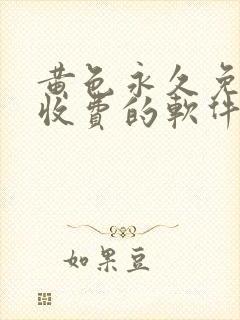 黄色永久免
收费的軟件
如果豆